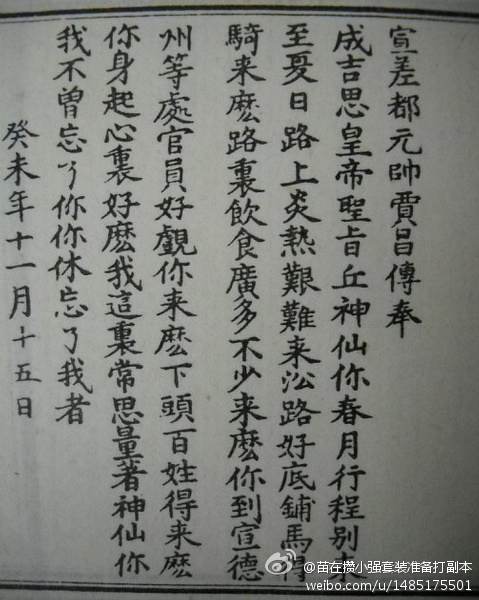 宣差都元帥賈昌傳奉
成吉思皇帝聖旨丘神仙你春月行程別来
至夏日路上炎熱艱難来沿路好底鋪馬得
騎来麽路裏飲食廣多不少来麽你到宣德
州等處官員好覷你来麽下頭百姓得来麽
你身起心裏好麽我這裏常思量著神仙你
我不曾忘了你你休忘了我者
癸未年十一月十五日
@苗在攒小强套装准备打副本
weibo.com/u/1485175501